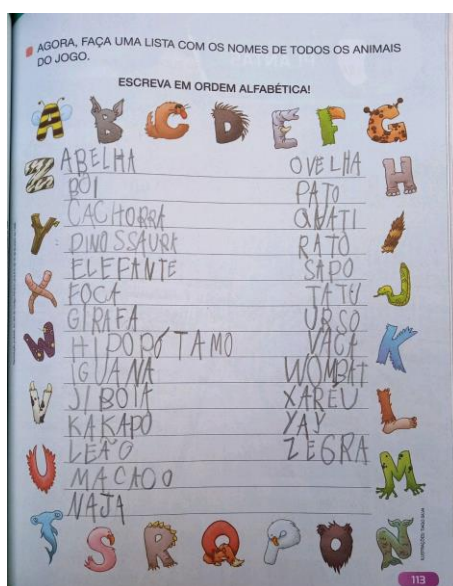 AGORA, FAÇA UMA LISTA COM OS NOMES DE TODOS OS ANIMAIS
DO JOGO.
ESCREVA EM ORDEM ALFABÉTICA!
A B C D E F G
Z
H
Y
I
X
J
W
K
V
L
U
M
T S R Q P O N
ABELHA
BOI
CACHORRA
DINOSSAURA
ELEFANTE
FOCA
GIRAFA
HIPOPÓTAMO
IGUANA
JIBOIA
KAKAPO
LEÃO
MACACO
NAJA
OVELHA
PATO
QUATI
RATO
SAPO
TATU
URSO
VACA
WOMBAT
XARÉU
YAY
ZEGRA
113